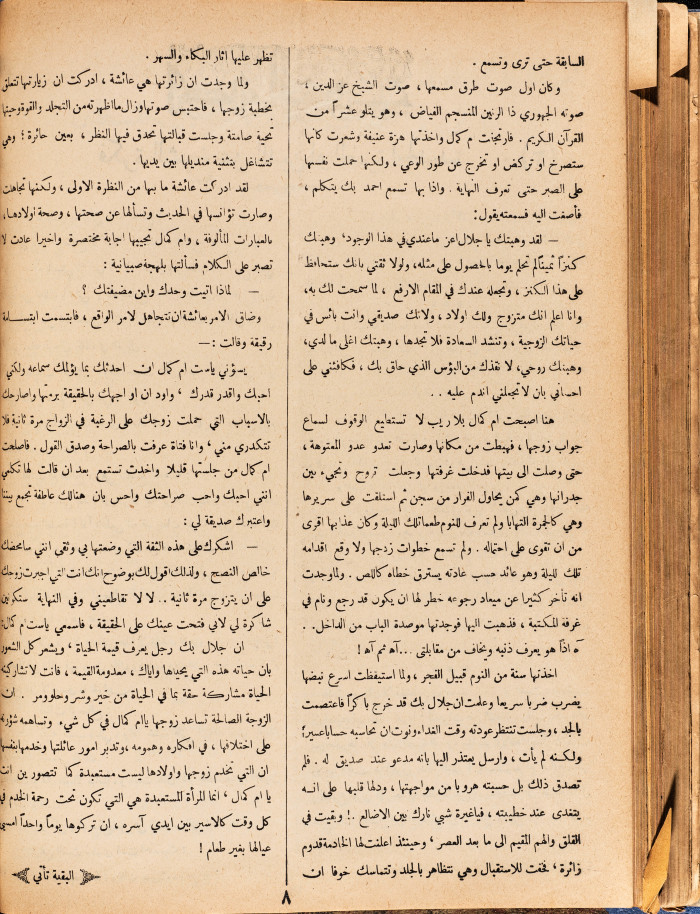 السابقة حتى ترى وتسمع .
وكان اول صوت طرق مسمعها ، صوت الشيخ عز الدين ،
صوته الجهوري ذا الرنين المنسجم الفياض ، وهو يتلو عشراً من
القرآن الكريم . فارتجفت م كمال واخذتها هزة عنيفة وشعرت كانها
ستصرخ او تركض او تخرج عن طور الوعي ، ولكنها حملت نفسها
على الصبر حتى تعرف النهاية . واذا بها تسمع احمد بك يتكلم ،
فأصغت اليه فسمعته يقول :
— لقد وهبتك يا جلال اعز ما عندي في هذا الوجود ، وهبتك
كنزاً ثميناً لم تحلم يوما بالحصول على مثله ، ولولا ثقتي بانك ستحافظ
على هذا الكنز ، وتجعله عندك في المقام الارفع ، لما سمحت لك به ،
وانا اعلم انك متزوج ولك اولاد ، ولانك صديقي وانت بائس في
حياتك الزوجية ، وتنشد السعادة فلا تجدها ، وهبتك اغلى ما لدي ،
وهبتك روحي ، لا نقذك من البؤس الذي حاق بك ، فكافئني على
احساني بان لا تجعلني اندم عليه . .
هنا اصبحت ام كمال بلا ريب لا تستطيع الوقوف لسماع
جواب زوجها ، فهبطت من مكانها وصارت تعدو عدو المعتوهة ،
حتى وصلت الى بيتها فدخلت غرفتها وجعلت تروح وتجيء بين
جدرانها وهي كمن يحاول الفرار من سجن ثم استلقت على سريرها
وهي كالجمرة التهابا ولم تعرف للنوم طعما تلك الليلة وكان عذابها اقوى
من ان تقوى على احتماله . ولم تسمع خطوات زوجها ولا وقع اقدامه
تلك الليلة وهو عائد حسب عادته يسترق خطاه كاللص . ولما وجدت
انه تأخر كثيرا عن ميعاد رجوعه خطر لها ان يكون قد رجع ونام في
غرفة المكتبة ، فذهبت اليها فوجدتها موصدة الباب من الداخل . .
آه اذاً هو يعرف ذنبه ويخاف من مقابلتي ... آه ثم آه !
اخذتها سنة من النوم قبيل الفجر ، ولما استيقظت اسرع نبضها
يضرب ضربا سريعا وعلمت ان جلال بك قد خرج باكراً فاعتصمت
بالجلد ، وجلست تنتظر عودته وقت الغداء ونوت ان تحاسبه حسابا عسيراً
ولكنه لم يأت ، وارسل يعتذر اليها بانه مدعو عند صديق له . فلم
تصدق ذلك بل حسبته هروبا من مواجهتها ، ودلها قلبها على انه
يتغدى عند خطيبته ، فيا غيرة شبي نارك بين الاضالع .! وبقيت في
القلق والهم المقيم الى ما بعد العصر ، وحينئذ اعلنت لها الخادمة قدوم
زائرة ، فخفت للاستقبال وهي تتظاهر بالجلد وتتماسك خوفا ان
تظهر عليها اثار البكاء والسهر .
ولما وجدت ان زائرتها هي عائشة ، ادركت ان زيارتها تتعلق
بخطبة زوجها ، فاحتبس صوتها وزال ما اظهرته من التجلد والقوة وحيتها
تحية صامتة وجلست قبالتها تحدق فيها النظر ، بعين حائرة ؛ وهي
تتشاغل بتثنية منديلها بين يديها .
لقد ادركت عائشة ما بها من النظرة الاولى ، ولكنها تجاهلت
وصارت تؤانسها في الحديث وتسألها عن صحتها ، وصحة اولادها ،
بالعبارات المألوفة ، وام كمال تجيبها اجابة مختصرة واخيرا عادت لا
تصبر على الكلام فسألتها بلهجة صبيانية :
— لماذا اتيت وحدك واين مضيفتك ؟
وضاق الامر بعائشة ان تتجاهل لامر الواقع ، فابتسمت ابتسامة
رقيقة وقالت : —
يسؤني ياست ام كمال ان احدثك بما يؤلمك سماعه ولكني
احبك واقدر قدرك ، واود ان او اجهك بالحقيقة برمتها واصارحك
بالاسباب التي حملت زوجك على الرغبة في الزواج مرة ثانية فلا
تتكدري مني ، وانا فتاة عرفت بالصراحة وصدق القول . فاصلحت
ام كمال من جلستها قليلا واخذت تستمع بعد ان قالت لها تكلمي
انني احبك واحب صراحتك واحس بان هنالك عاطفة تجمع بيننا
واعتبرك صديقة لي :
— اشكرك على هذه الثقة التي وضعتها بي وثقي انني سامحضك
خالص النصح ، ولذلك اقول لك بوضوح انك انت التي اجبرت زوجك
على ان يتزوج مرة ثانية .. لا لا تقاطعيني وفي النهاية ستكونين
شاكرة لي لاني فتحت عينك على الحقيقة ، فاسمعي ياست ام كمال :
ان جلال بك رجل يعرف قيمة الحياة ، ويشعر كل الشعور
بان حياته هذه التي يحياها واياك ، معدومة القيمة ، فانت لا تشاركينه
الحياة مشاركة حقة بما في الحياة من خير وشر وحلو ومر . ان
الزوجة الصالحة تساعد زوجها يا ام كمال في كل شيء وتساهمه شؤونه
على اختلافها ، في افكاره وهمومه ، وتدبر امور عائلتها وخدمها بنفسها
ان التي تخدم زوجها واولادها ليست مستعبدة كما تتصورين انت
يا ام كمال ، انما المرأة المستعبدة هي التي تكون تحت رحمة الخدم في
كل وقت كالاسير بين ايدي آسره ، ان تركوها يوماً واحداً امسى
عيالها بغير طعام !
البقية تأتي
٨